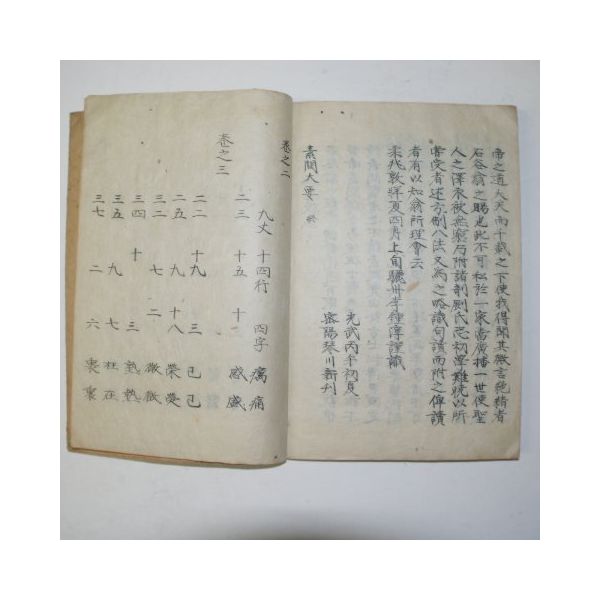 帝之道大矣而千載之下使我得聞其微言絶緖者
石谷翁之賜也此不可私於一家當廣播一世使聖
人之澤來被無窮乃附諸剞劂氏恐初學難曉以所
嘗受者述方例八法又爲之略識句讀而附之俾讀
者有以知翁所理會云
柔兆敦牂夏四月上旬驪州李鍾淳謹識
光武丙午初夏
密陽琴川新刊
素問大要
卷之二
九丈 十四行 四字 癘 痛
二三 十五 十一 感 盛
卷之三
二二 十九 三 已 己
二五 九 十八 榮
三二 七 二 微
三四 十 三 熟 熱
三五 九 七 枉 在
三七 二 六 裏